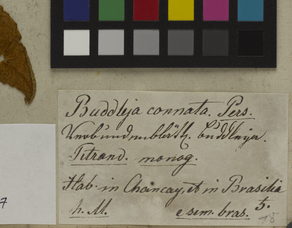 Buddleja connata. Pers.
Verbundenblüth. Buddleja.
Tetrand. monog.
Hab. in Chancay, et in Brasilia
h. M. e sem. bras. 5.
18
7